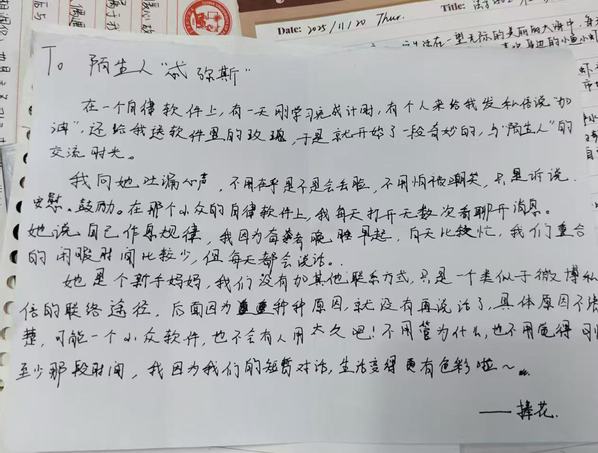 Date: 2025/11/20 Thur.
Title:
To 陌生人"忒弥斯"
在一个自律软件上,有一天刚学习完成计时,有个人来给我发私信说"加
油",还给我送软件里的玫瑰,于是就开始了一段奇妙的,与"陌生人"的
交流时光。
我向她吐漏心声,不用在乎是不是会丢脸,不用怕被嘲笑,只是诉说、
安慰、鼓励。在那个小众的自律软件上,我每天打开无数次看聊天消息。
她说自己作息规律,我因为每天晚睡早起,白天比较忙,我们重合
的闲暇时间比较少,但每天都会说话。
她是个新手妈妈,我们没有加其他联系方式,只是一个类似于微博私
信的联络途径,后面因为种种原因,就没有再说话了,具体原因不清
楚,可能一个小众软件,也不会有人用太久吧!不用管为什么,也不用觉得可惜
至少那段时间,我因为我们的短暂对话,生活变得更有色彩啦~
——捧花.